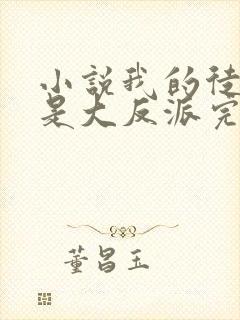 小說我的徒
是大反派完
董昌玉